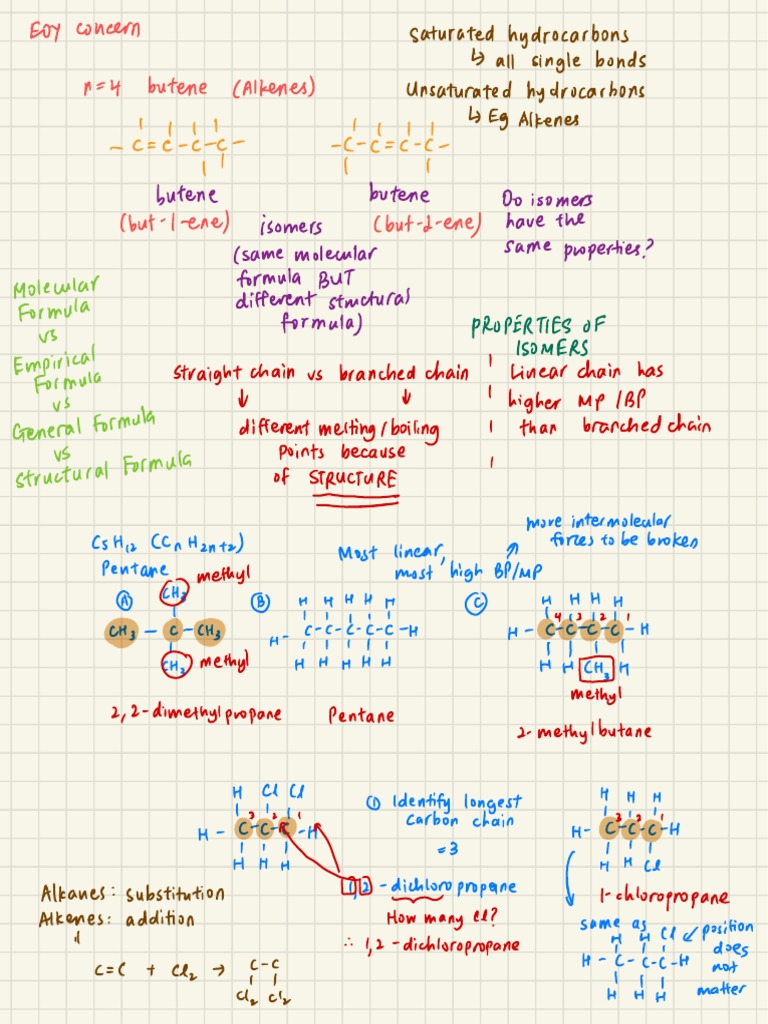 EOY concern
Saturated hydrocarbons
↳ all single bonds
n=4 butene (Alkenes)
Unsaturated hydrocarbons
↳ Eg Alkenes
- C = C - C - C -
- C - C = C - C -
butene
(but-1-ene)
butene
(but-2-ene)
isomers
(same molecular
formula BUT
different structural
formula)
Do isomers
have the
same properties?
Molecular
Formula
vs
Empirical
Formula
vs
General Formula
vs
Structural Formula
PROPERTIES OF
ISOMERS
Straight chain vs branched chain
↓ ↓
different melting/boiling
points because
of STRUCTURE
Linear chain has
higher MP/BP
than branched chain
C5H12 (CnH2n+2)
Pentane
Most linear,
most high BP/MP
more intermolecular
forces to be broken
A
CH3 methyl
CH3 - C - CH3
CH3 methyl
2,2-dimethylpropane
B
H H H H H
H - C - C - C - C - C - H
H H H H H
Pentane
C
H H H H
4 3 2 1
H - C - C - C - C - H
H H CH3 H
methyl
2-methylbutane
H Cl Cl
3 2 1
H - C - C - C - H
H H H
① Identify longest
carbon chain
= 3
1,2-dichloropropane
How many Cl?
∴ 1,2-dichloropropane
H H H
3 2 1
H - C - C - C - H
H H Cl
1-chloropropane
same as
H H Cl
H - C - C - C - H
H H H
position
does
not
matter
Alkanes: substitution
Alkenes: addition
C=C + Cl2 → C - C
Cl2 Cl2